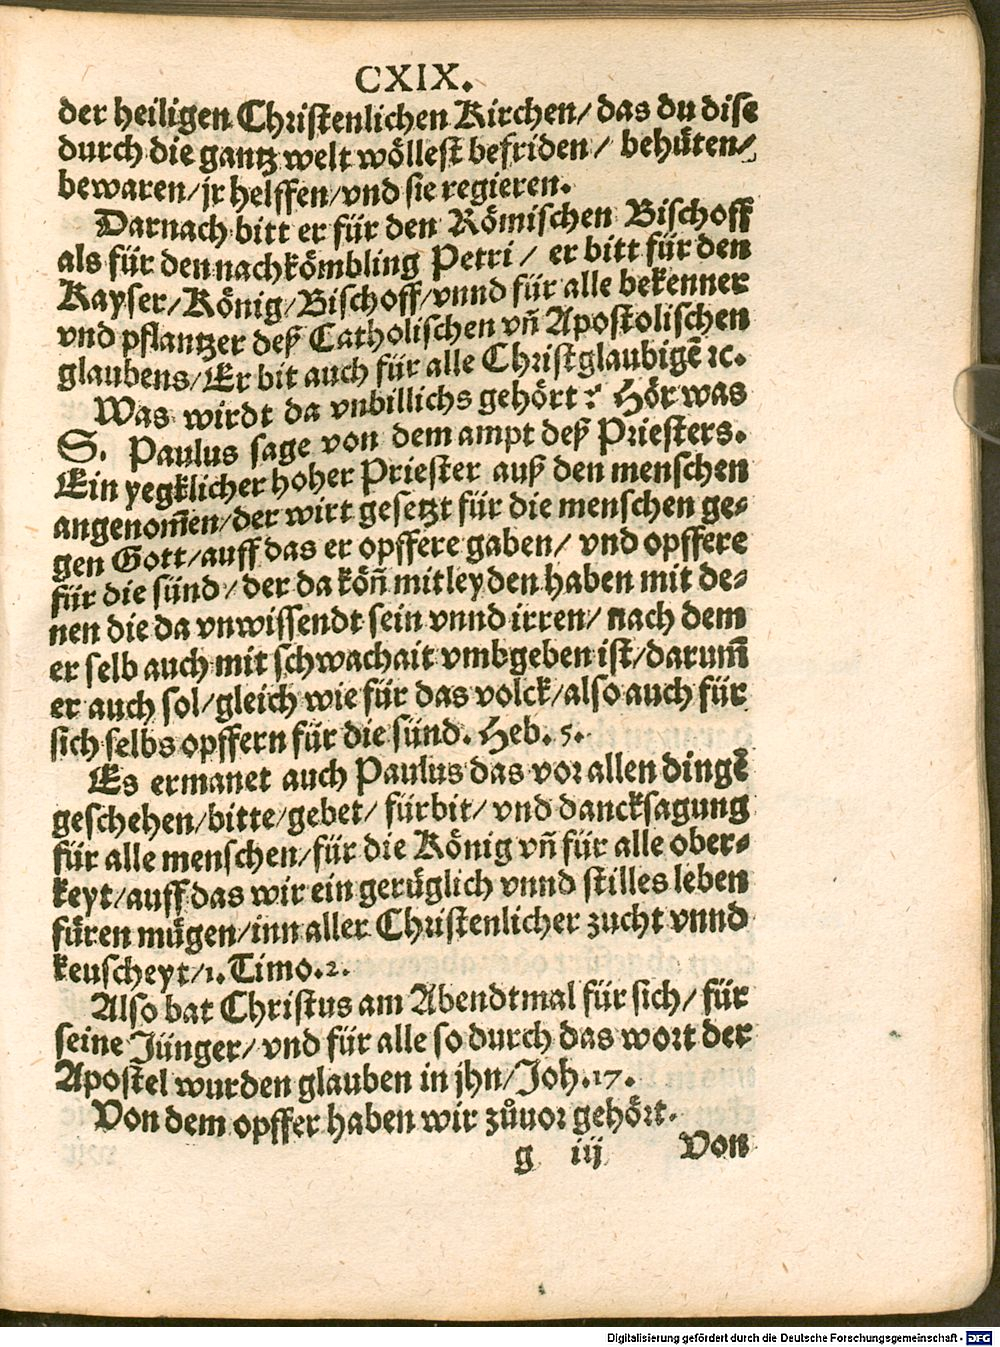 CXIX.
der heiligen Christenlichen Kirchen/ das du dise
durch die gantz welt wöllest befriden/ behüten/
bewaren/ jr helffen/ vnd sie regieren.
Darnach bitt er für den Römischen Bischoff
als für den nachkömbling Petri/ er bitt für den
Kayser/ König/ Bischoff/ vnnd für alle bekenner
vnd pflantzer deß Catholischen vn̄ Apostolischen
glaubens/ Er bit auch für alle Christglaubigē ꝛc.
Was wirdt da vnbillichs gehört? Hör was
S. Paulus sage von dem ampt deß Priesters.
Ein yegklicher hoher Priester auß den menschen
angenom̄en/ der wirt gesetzt für die menschen ge-
gen Gott/ auff das er opffere gaben/ vnd opffere
für die sünd/ der da kön̄ mitleyden haben mit de-
nen die da vnwissendt sein vnnd irren/ nach dem
er selb auch mit schwachait vmbgeben ist/ darum̄
er auch sol/ gleich wie für das volck/ also auch für
sich selbs opffern für die sünd. Heb. 5.
Es ermanet auch Paulus das vor allen dingē
geschehen/ bitte/ gebet/ fürbit/ vnd dancksagung
für alle menschen/ für die König vn̄ für alle ober-
keyt/ auff das wir ein gerüglich vnnd stilles leben
füren mügen/ inn aller Christenlicher zucht vnnd
keuscheyt/ 1. Timo. 2.
Also bat Christus am Abendtmal für sich/ für
seine Jünger/ vnd für alle so durch das wort der
Apostel wurden glauben in jhn/ Joh. 17.
Von dem opffer haben wir zůuor gehört.
g iij Von
Digitalisierung gefördert durch die Deutsche Forschungsgemeinschaft - DFG